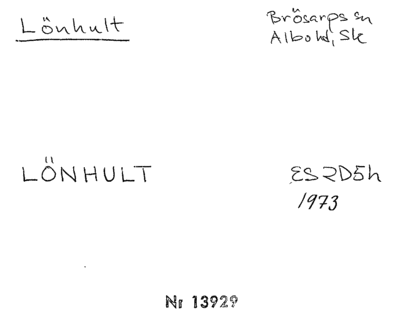 Lönhult
Brösarps sn
Albo hd, Sk
LÖNHULT
ES 2D5h
1973
Nr 13929